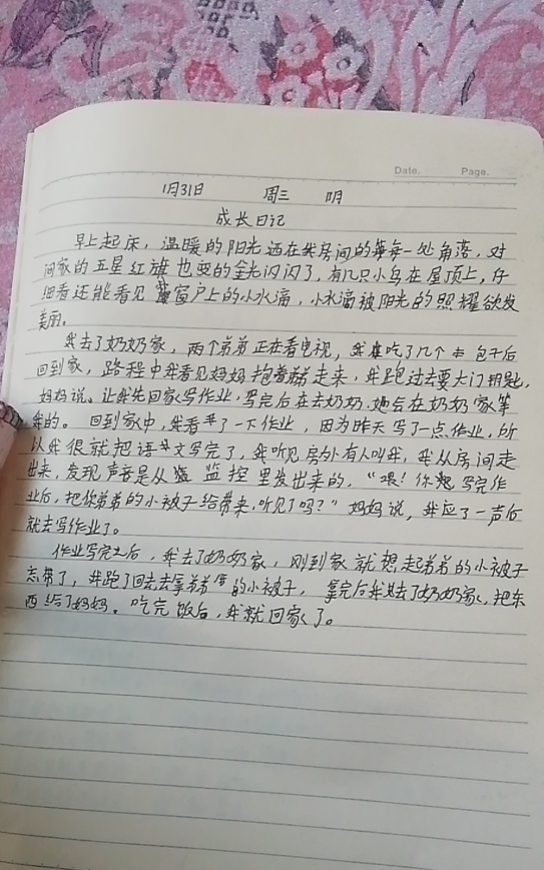 Date. Page.
1月31日 周三 阴
成长日记
早上起床，温暖的阳光洒在我房间的每一处角落，对
间家的五星红旗也变的金光闪闪了，有几只小鸟在屋顶上，仔
细看还能看见窗户上的小水滴，小水滴被阳光的照耀欲发
美丽。
我去了奶奶家，两个弟弟正在看电视，我吃了几个包子后
回到家，路程中我看见妈妈抱着弟弟走来，我跑过去要大门钥匙，
妈妈说。让我先回家写作业，写完后在去奶奶，她会在奶奶家等
我的。回到家中，我看了一下作业，因为昨天写了一点作业，所
以我很就把语文写完了，我听见房外有人叫我，我从房间走
出来，发现声音是从监控里发出来的，“喂！你写完作
业后，把你弟弟的小被子给带来，听见了吗？”妈妈说，我应了一声后
就去写作业了。
作业写完之后，我去了奶奶家，刚到家就想起弟弟的小被子
忘带了，我跑了回去去拿弟弟的小被子，拿完后我去了奶奶家，把东
西给了妈妈。吃完饭后，我就回家了。